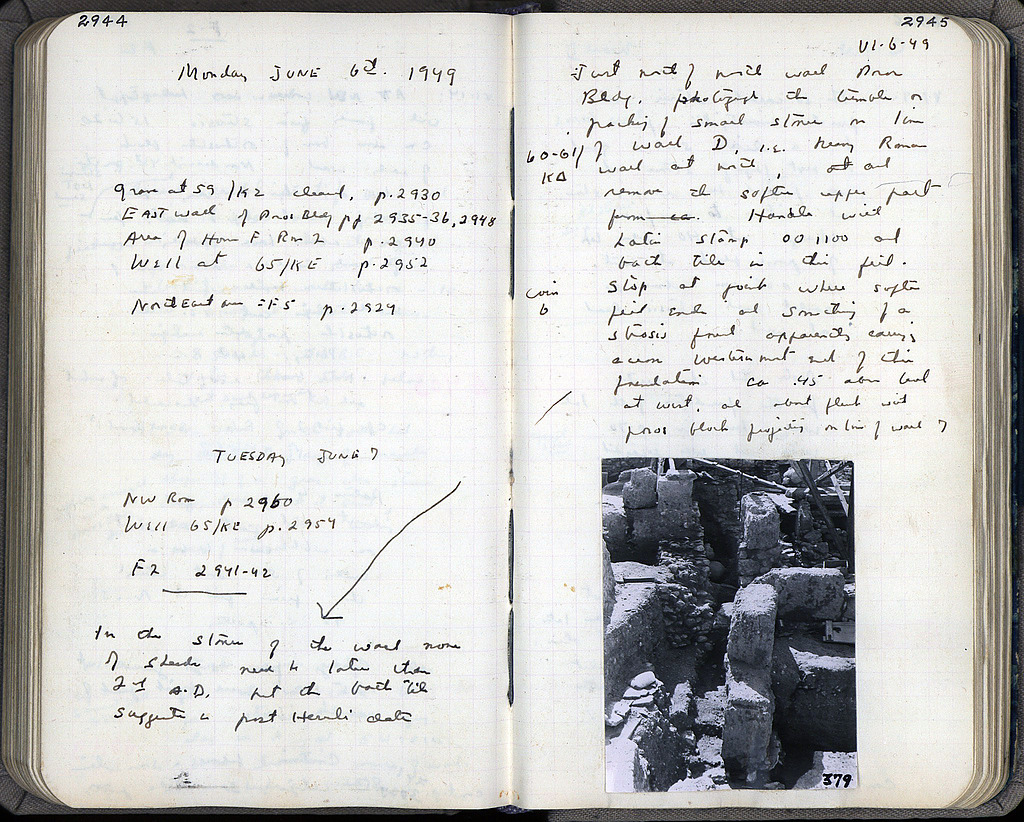 2944
Monday JUNE 6th. 1949
Grave at 59/KZ cleared, p. 2930
EAST wall of Poros Bldg pp 2935-36, 2948
Area of House F Rm 2 p. 2940
Well at 65/KE p. 2952
NorthEast p. 2929
TUESDAY JUNE 7
NW Rom p 2960
Well 65/KE p. 2954
F2 2941-42
In the stones of the wall none
of sherds need be later than
2d A.D. but the bath tile
suggests a post Heruli date
2945
VI-6-49
Just north of north wall Poros
Bldg. photograph the tumble or
packing of small stones on line
60-61/ of wall D, i.e. heavy Roman
KΔ wall at north, and
remove the softer upper part
Handle with
Latin stamp and
bath tile in this fill.
coin Stop at point where softer
6 fill ends and something of a
strosis found apparently
across westernmost end of this
foundation ca .45 above
at west, and about flush with
poros block projecting on line of wall
379